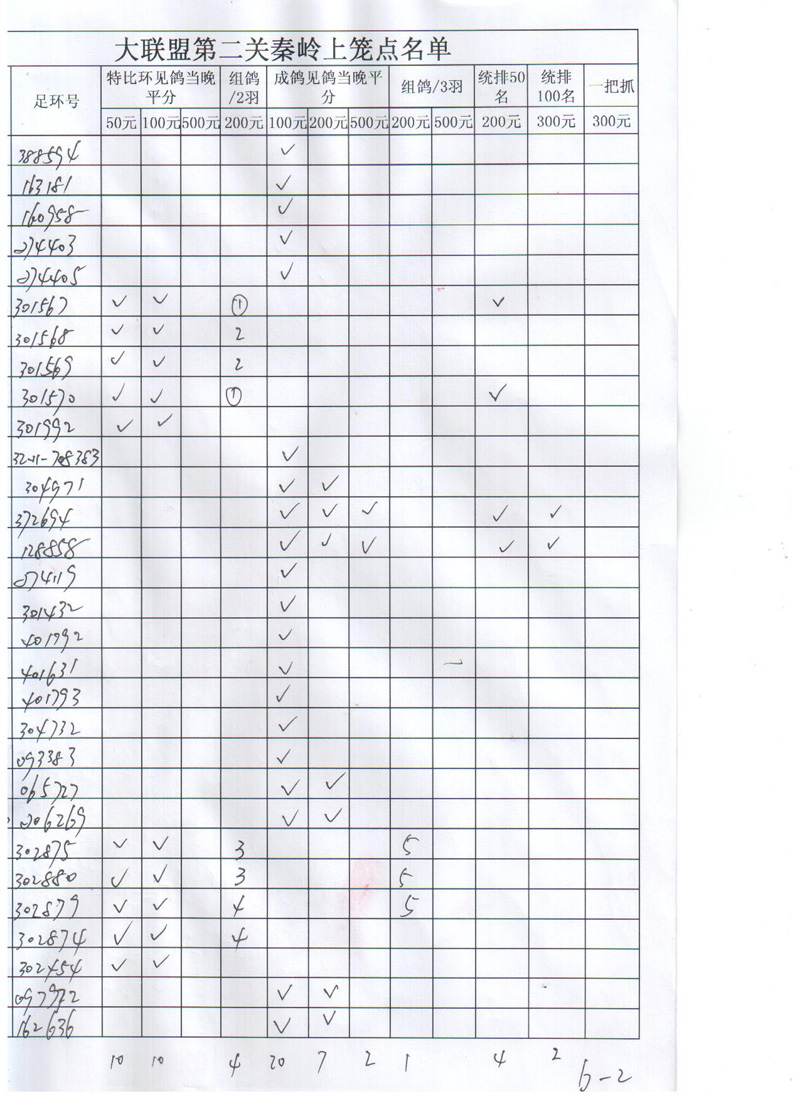 大联盟第二关秦岭上笼点名单
足环号 特比环见鸽当晚平分 组鸽/2羽 成鸽见鸽当晚平分 组鸽/3羽 统排50名 统排100名 一把抓
50元 100元 500元 200元 100元 200元 500元 200元 500元 200元 300元 300元
388594 ✓
163181 ✓
160958 ✓
274403 ✓
274405 ✓
301567 ✓ ✓ ① ✓
301568 ✓ ✓ 2
301569 ✓ ✓ 2
301570 ✓ ✓ ① ✓
301992 ✓ ✓
708383 ✓
304971 ✓ ✓
372694 ✓ ✓ ✓ ✓ ✓
128858 ✓ ✓ ✓ ✓ ✓
274119 ✓
301432 ✓
401992 ✓
401631 ✓
401793 ✓
304732 ✓
093383 ✓
065727 ✓ ✓
206269 ✓ ✓
302875 ✓ ✓ 3 5
302880 ✓ ✓ 3 5
302879 ✓ ✓ 4 5
302874 ✓ ✓ 4
302454 ✓ ✓
✓ ✓
162636 ✓ ✓
10 10 4 20 7 2 1 4 2
6-2